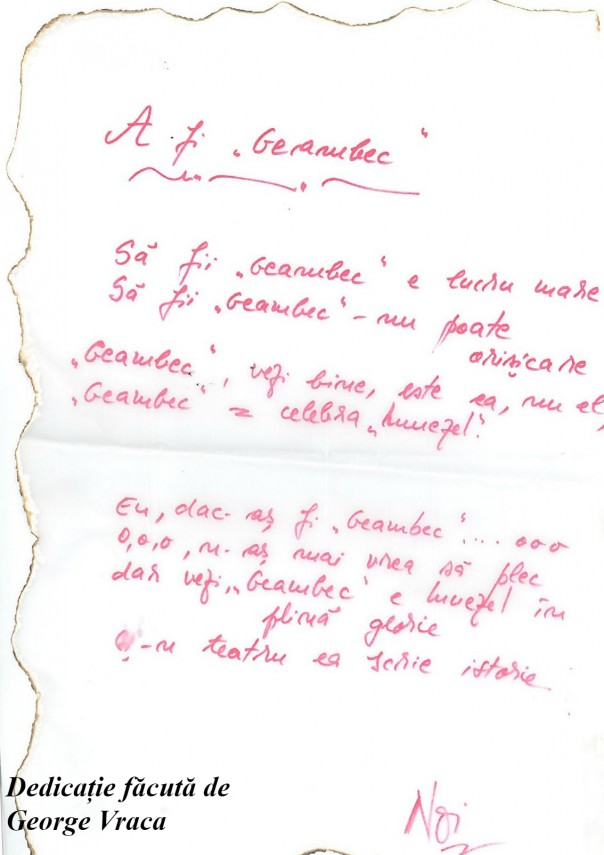 A fi „Geambec“
Să fii „Geambec“ e lucru mare
Să fii „Geambec“ - nu poate
orișicare
„Geambec“, vezi bine, este ea, nu el,
„Geambec“ = celebra „Muezel“.
Eu, dac-aș fi „Geambec“... ooo
O,o,o, n-aș mai vrea să plec
dar vezi, „Geambec“ e Muezel în
plină glorie
Și-n teatru ea scrie istorie
Noi
Dedicație făcută de
George Vraca